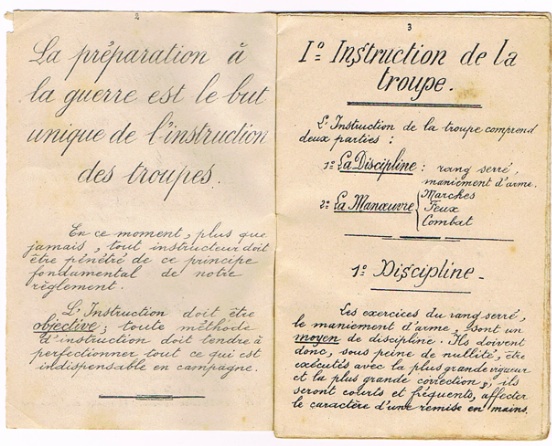 2
La préparation à
la guerre est le but
unique de l'instruction
des troupes.
En ce moment, plus que
jamais, tout instructeur doit
être pénétré de ce principe
fondamental de notre
règlement.
L'Instruction doit être
objective; toute méthode
d'instruction doit tendre à
perfectionner tout ce qui est
indispensable en campagne.
3
Iº Instruction de la
troupe.
L'Instruction de la troupe comprend
deux parties:
1º La Discipline: rang serré,
maniement d'arme.
2º La Manœuvre { Marches
Feux
Combat
1º Discipline.
Les exercices du rang serré,
le maniement d'arme, sont un
moyen de discipline. Ils doivent
donc, sous peine de nullité, être
exécutés avec la plus grande vigueur
et la plus grande correction; ils
seront courts et fréquents, affecter
le caractère d'une remise en mains.